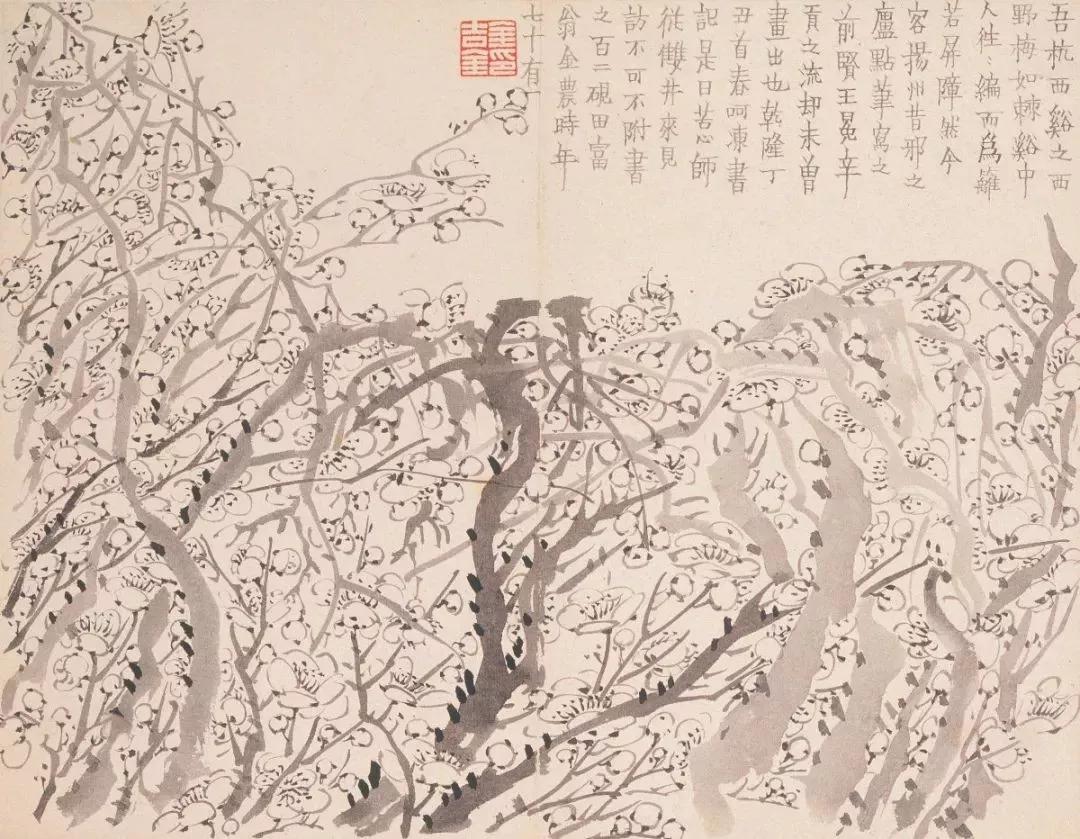 吾杭西谿之西
野梅如棘谿中
人往〻編而爲籬
若屏障然今
客揚州昔邪之
廬點筆寫之
前賢王冕辛
貢之流却未曽
畫出也乾隆丁
丑首春呵凍書
記是日苦心師
從雙井來見
訪不可不附書
之百二硯田富
翁金農時年
七十有一
金吉金印